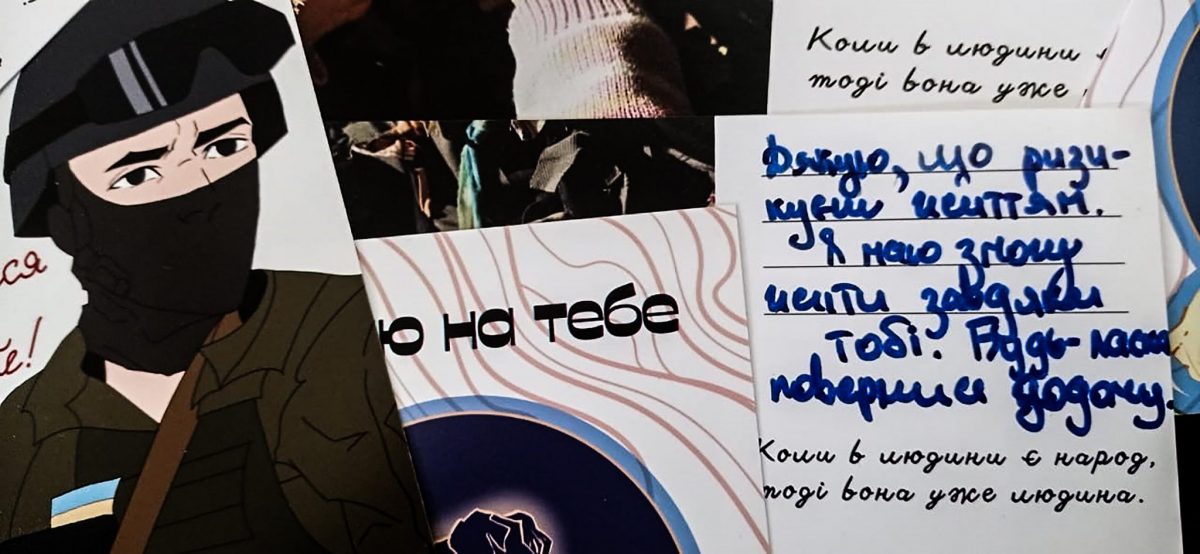 Коли в людини
тоді вона уже
Дякую, що ризи-
куєш життям.
Я маю змогу
жити завдяки
тобі. Будь-ласка
повернися додому.
Коли в людини є народ,
тоді вона уже людина.
ся
ю на тебе